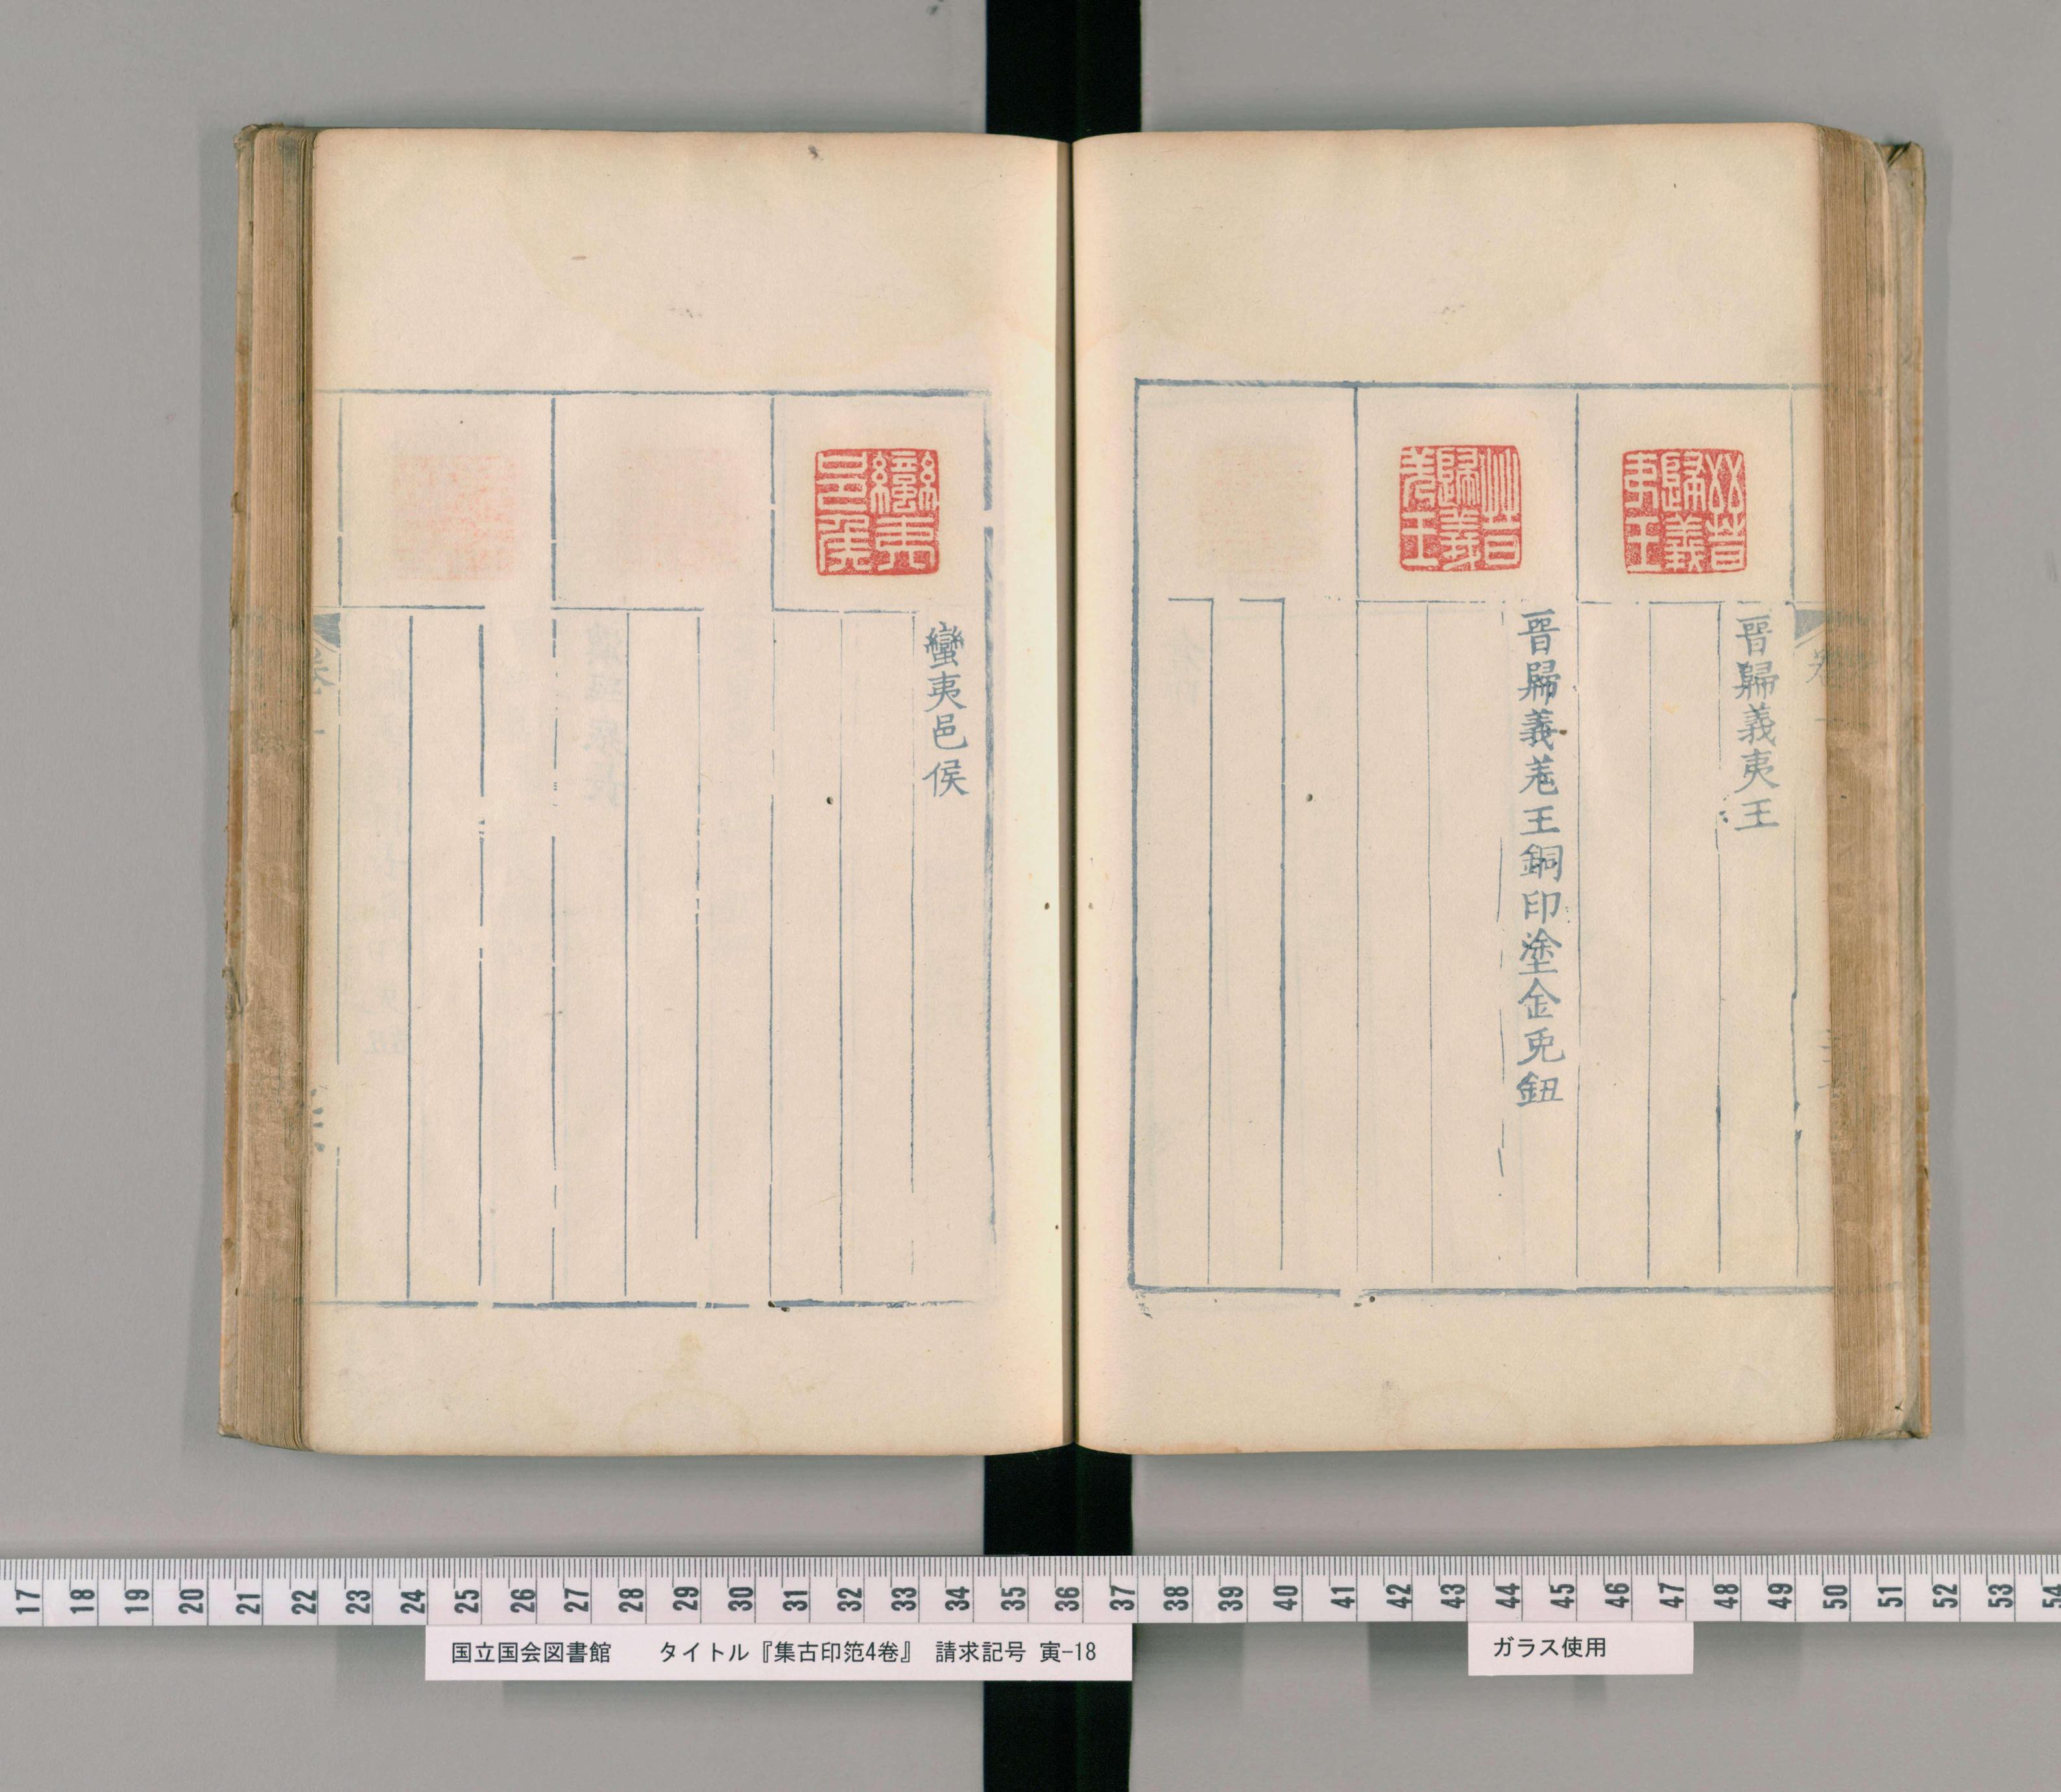 晉歸義夷王
晉歸義羌王銅印塗金兎鈕
蠻夷邑侯
晉歸義夷王
晉歸義羌王
蠻夷邑侯
17 18 19 20 21 22 23 24 25 26 27 28 29 30 31 32 33 34 35 36 37 38 39 40 41 42 43 44 45 46 47 48 49 50 51 52 53 54
国立国会図書館 タイトル『集古印笵4巻』 請求記号 寅-18
ガラス使用